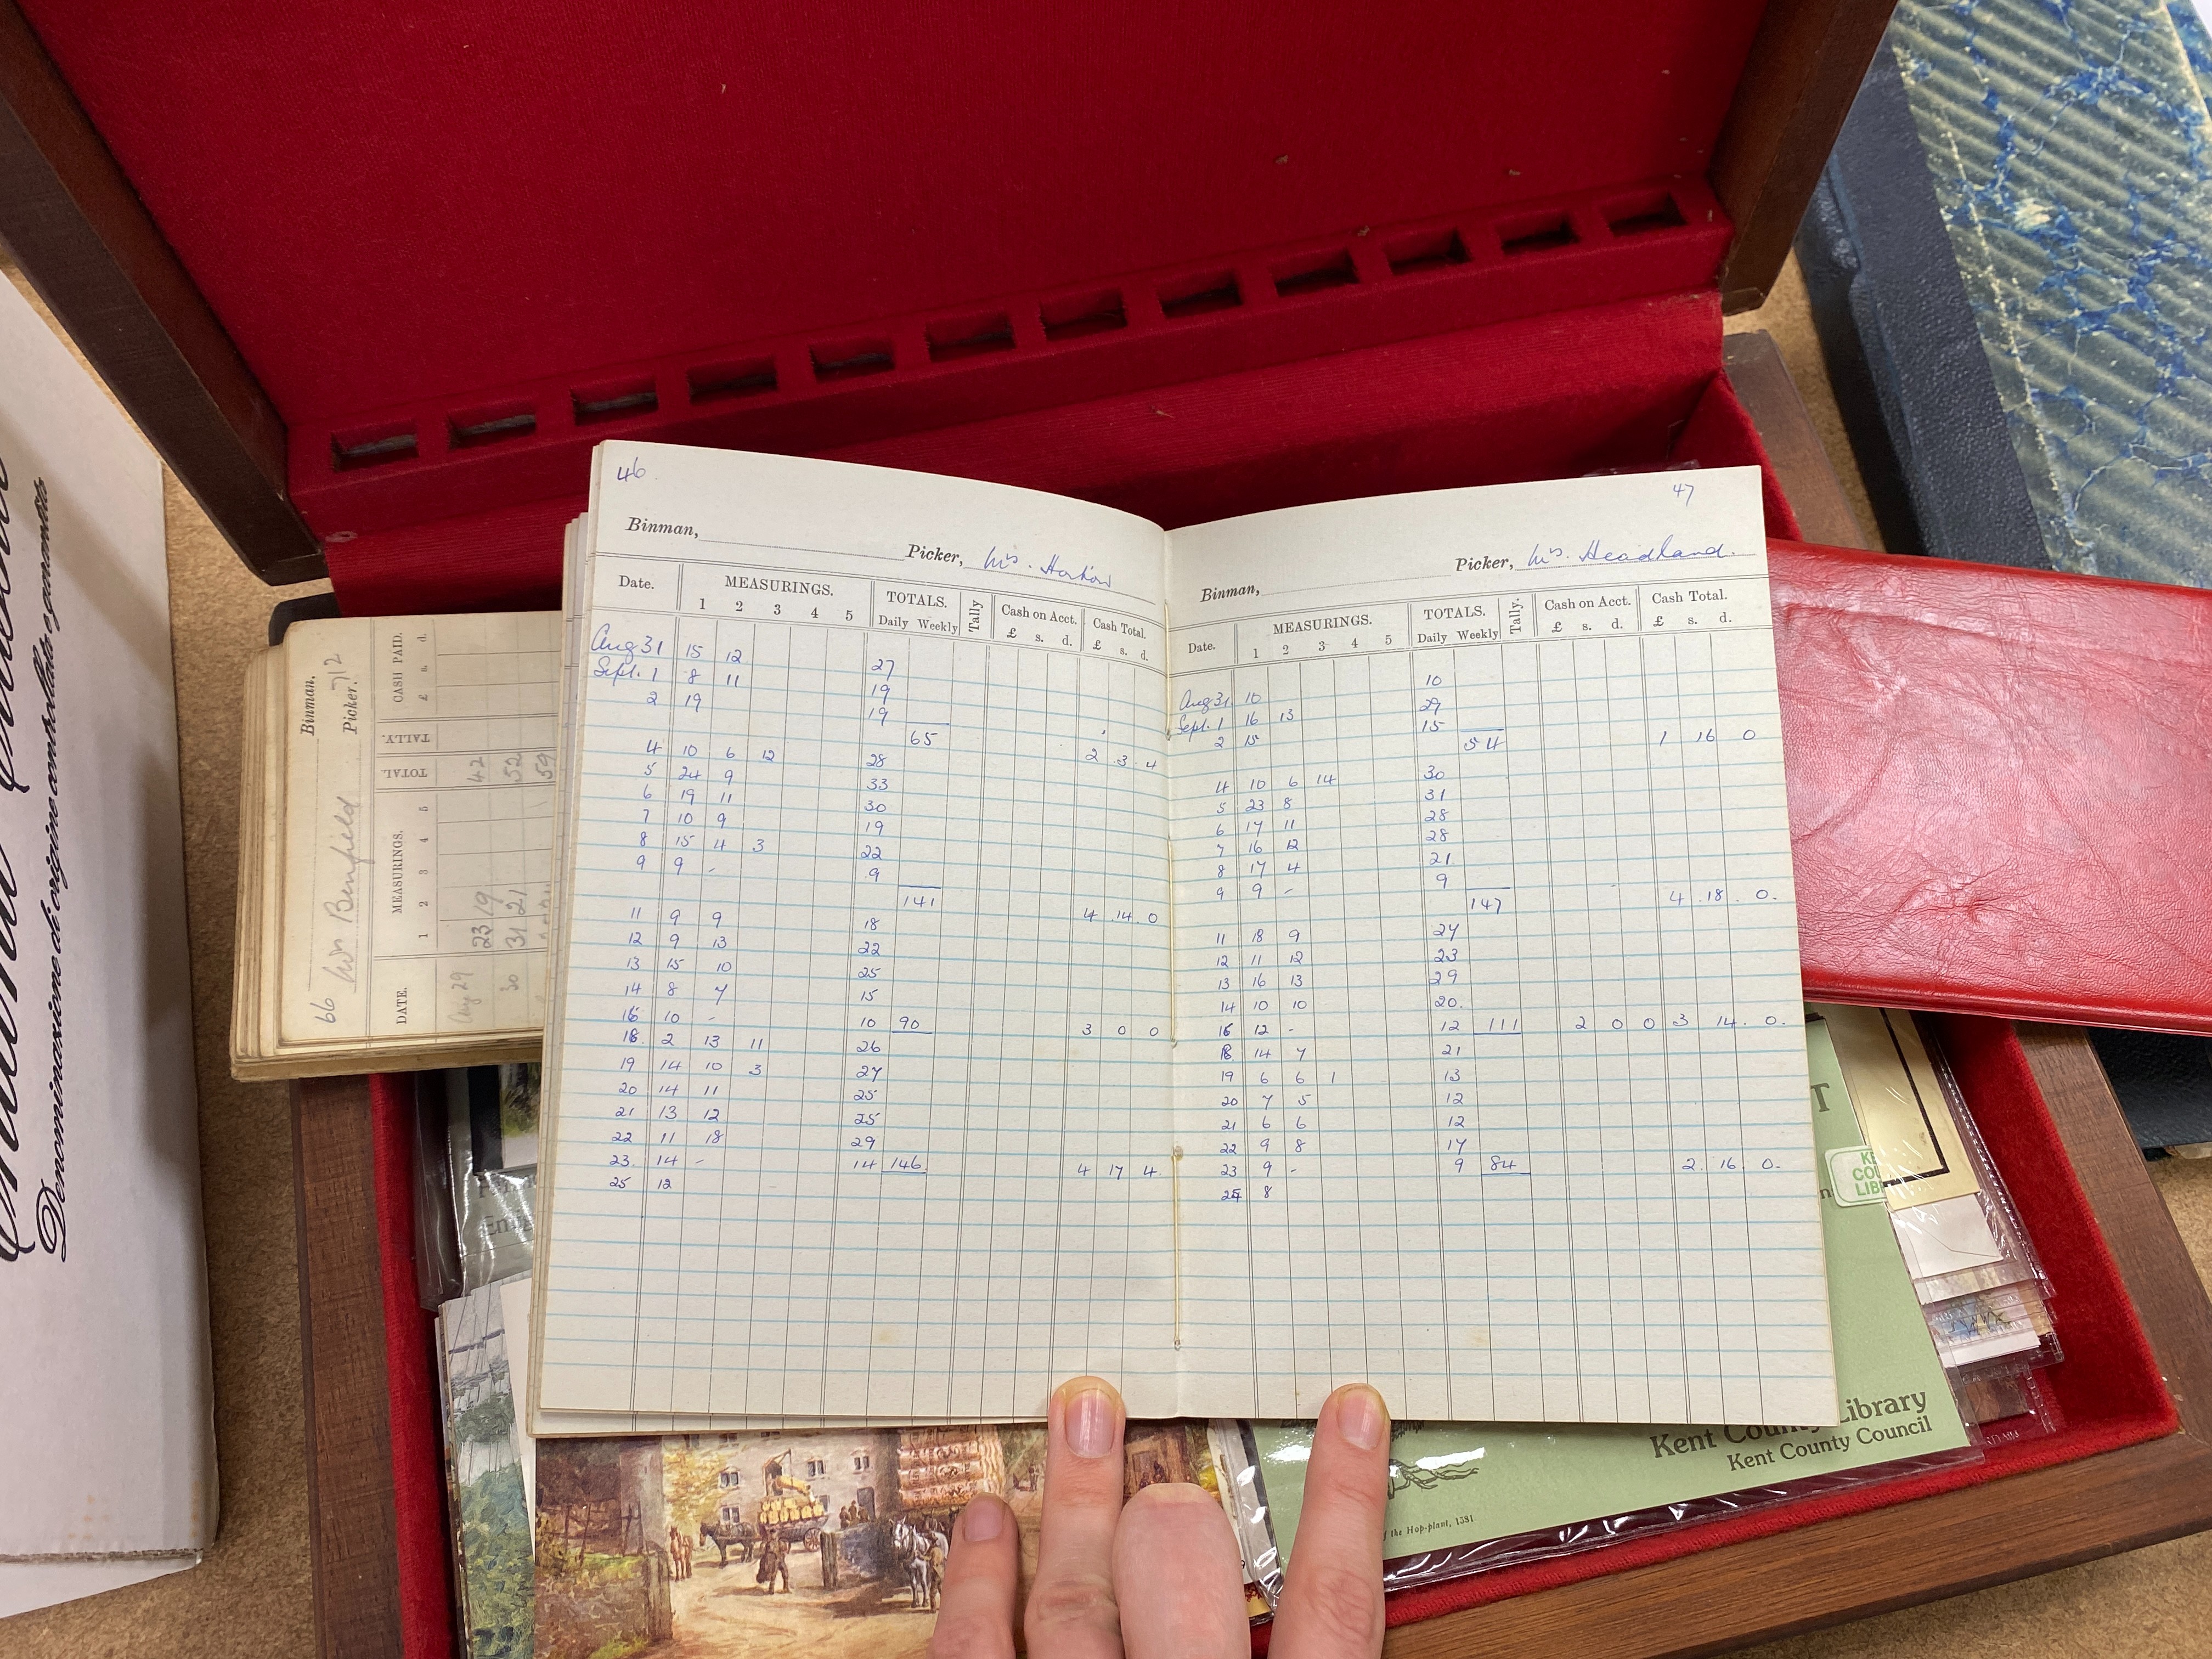 46.
Binman,
Picker, Mrs. Horton
Date. MEASURINGS. TOTALS. Tally Cash on Acct. Cash Total.
1 2 3 4 5 Daily Weekly £ s. d. £ s. d.
Aug 31 15 12 27
Sept. 1 8 11 19
2 19 19
65 2 . 3 . 4
4 10 6 12 28
5 24 9 33
6 19 11 30
7 10 9 19
8 15 4 3 22
9 9 - 9
141 4 . 14 . 0
11 9 9 18
12 9 13 22
13 15 10 25
14 8 7 15
16 10 - 10 90 3 0 0
18. 2 13 11 26
19 14 10 3 27
20 14 11 25
21 13 12 25
22 11 18 29
23. 14 - 14 146 4 17 4.
25 12
47
Binman,
Picker, Mrs. Headland.
Date. MEASURINGS. TOTALS. Tally. Cash on Acct. Cash Total.
1 2 3 4 5 Daily Weekly £ s. d. £ s. d.
Aug 31 10 10
Sept. 1 16 13 29
2 15 15
54 1 16 0
4 10 6 14 30
5 23 8 31
6 17 11 28
7 16 12 28
8 17 4 21
9 9 - 9
147 4 . 18 . 0.
11 18 9 27
12 11 12 23
13 16 13 29
14 10 10 20
16 12 - 12 111 2 0 0 3 14. 0.
18 14 7 21
19 6 6 1 13
20 7 5 12
21 6 6 12
22 9 8 17
23 9 - 9 84 2. 16 0.
25 8
66 Mrs Benfield
Binman.
Picker. 712
DATE. MEASURINGS. TOTAL. TALLY. CASH PAID.
1 2 3 4 5 £ s. d.
Aug 29 23 19 42
30 31 21 52
59
Denominazione di origine controllata e garantita
Kent County Library
Kent County Council
the Hop-plant, 1581